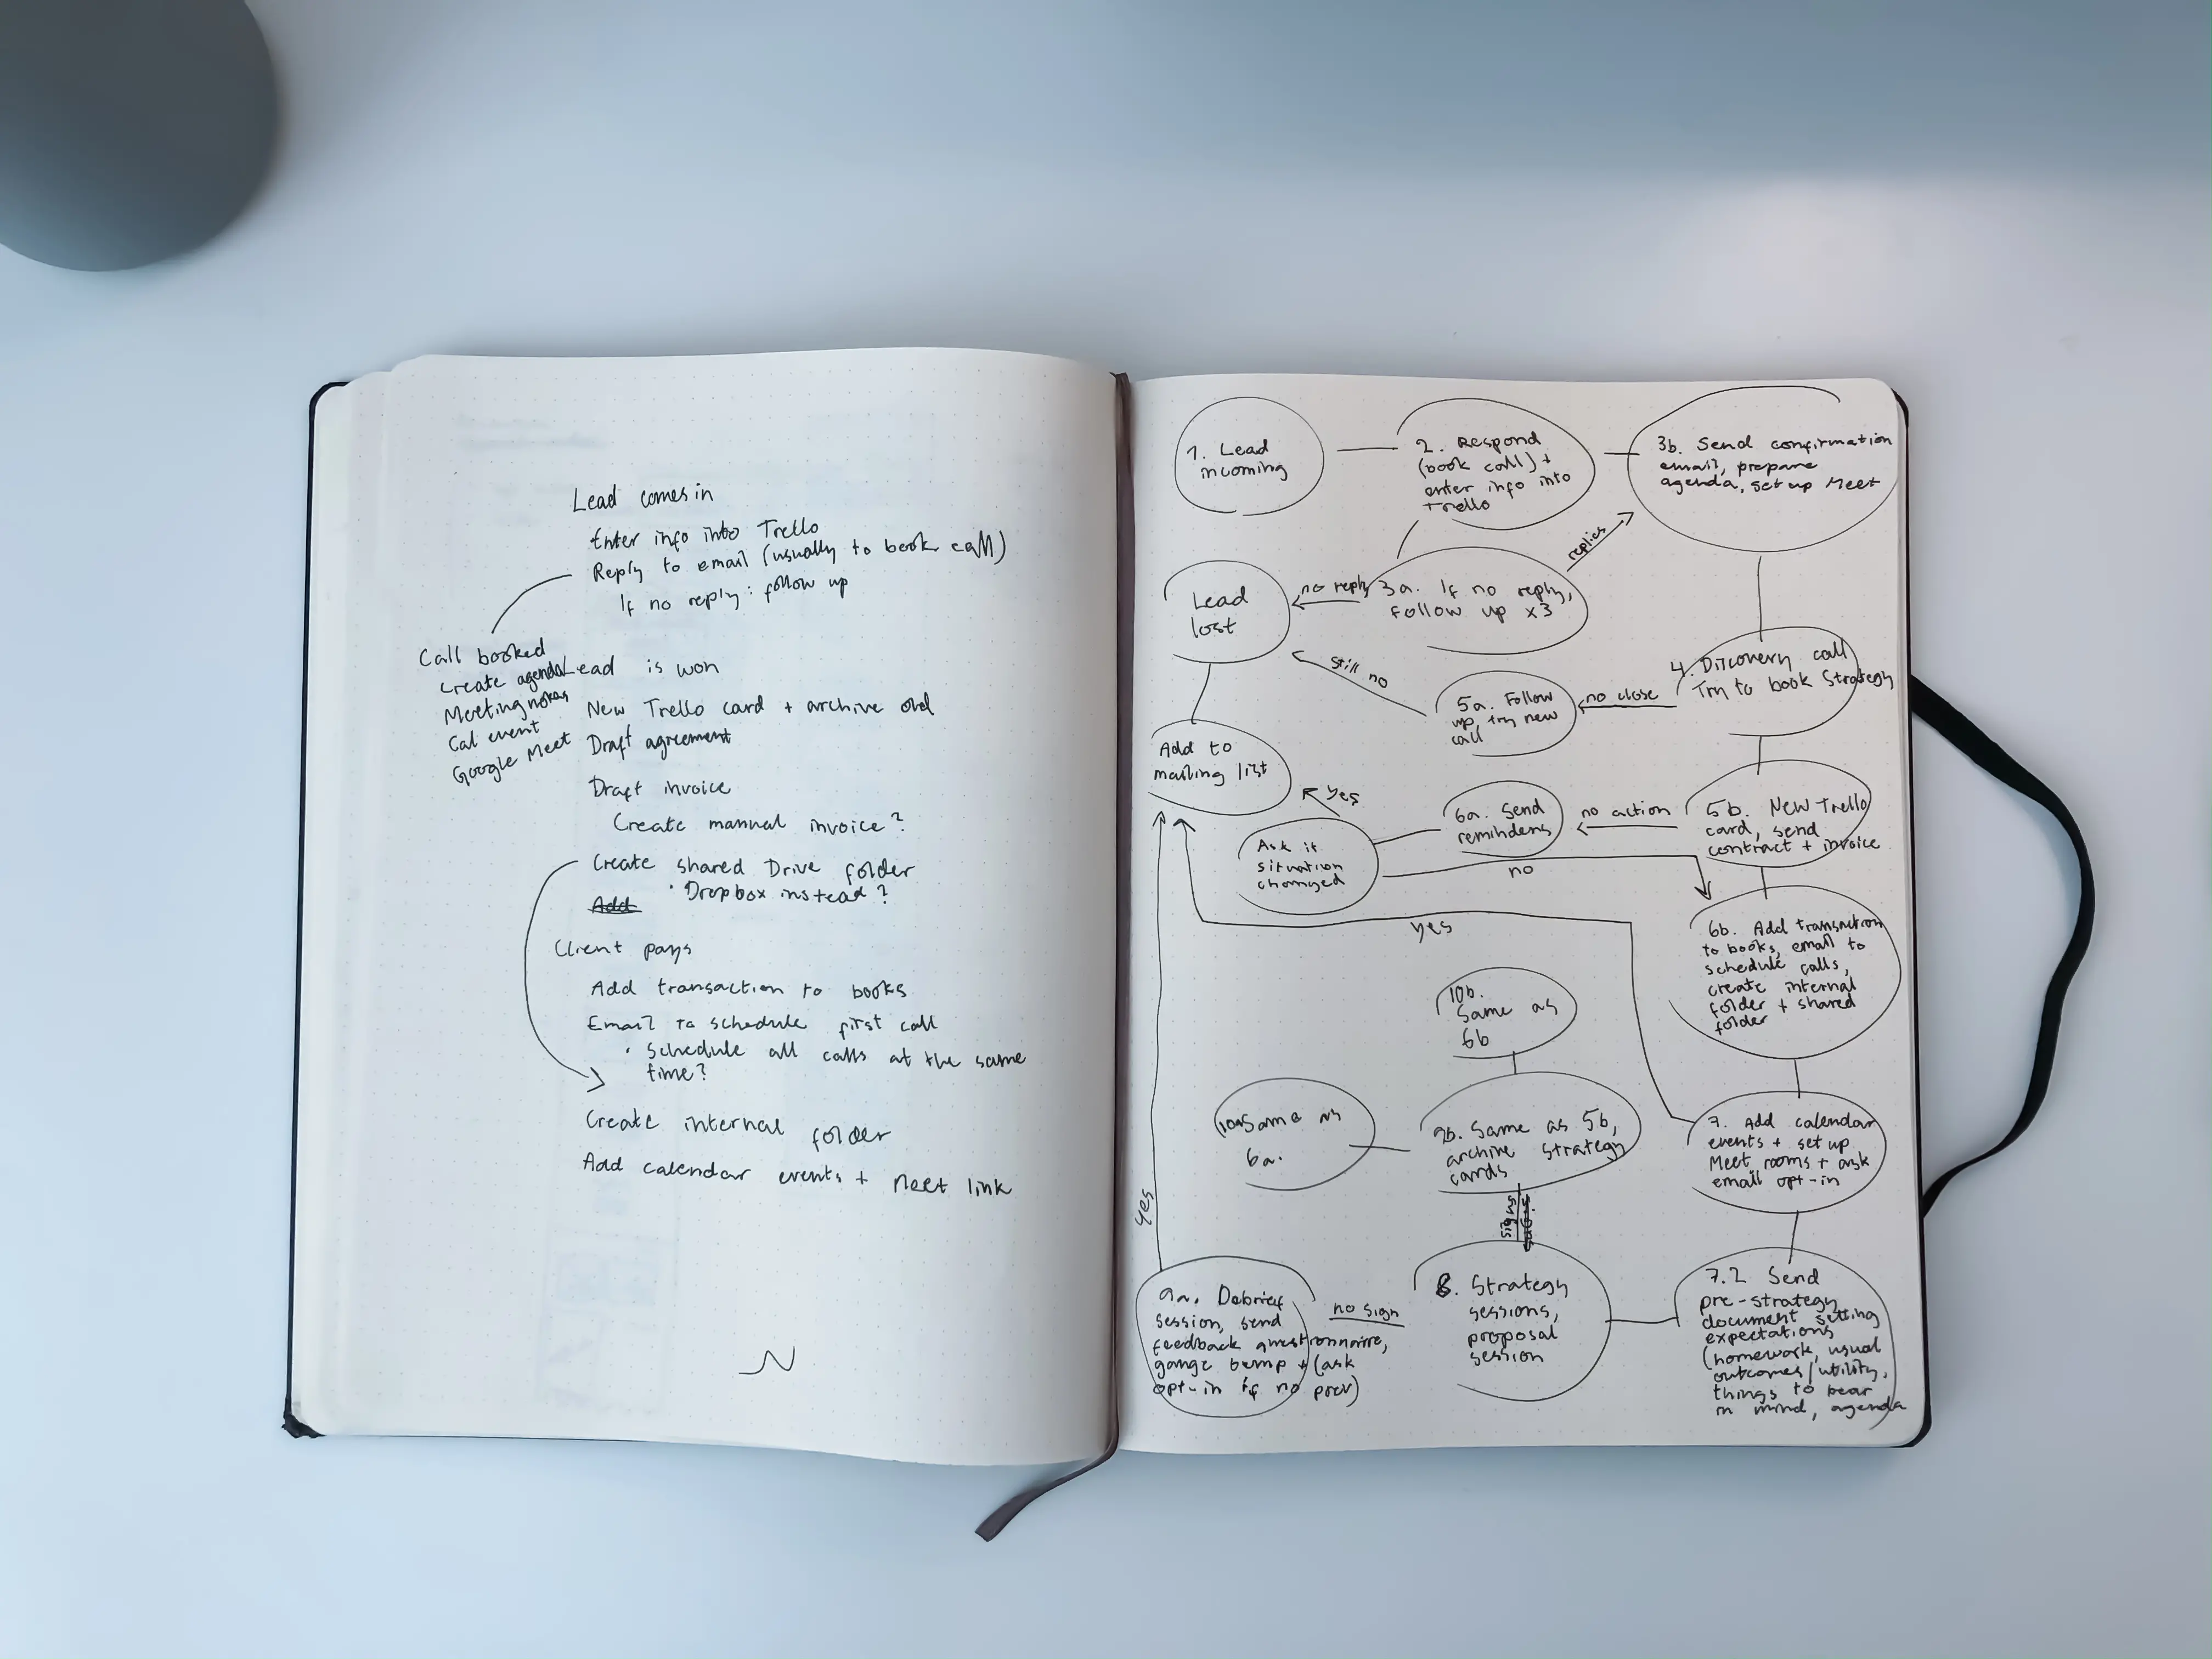 Lead comes in
Enter info into Trello
Reply to email (usually to book call)
If no reply: follow up
Call booked
Create agenda
Meeting notes
Cal event
Google Meet
Lead is won
New Trello card + archive old
Draft agreement
Draft invoice
Create manual invoice?
Create shared Drive folder
· Dropbox instead?
Add
Client pays
Add transaction to books
Email to schedule first call
· Schedule all calls at the same
time?
Create internal folder
Add calendar events + Meet link
1. Lead
incoming
2. Respond
(book call) +
enter info into
Trello
3b. Send confirmation
email, prepare
agenda, set up Meet
replies
3a. If no reply,
follow up x3
no reply
Lead
lost
4. Discovery call
Try to book Strategy
no close
5a. Follow
up, try new
call
still no
Add to
mailing list
5b. New Trello
card, send
contract + invoice
no action
6a. Send
reminders
yes
Ask if
situation
changed
no
6b. Add transaction
to books, email to
schedule calls,
create internal
folder + shared
folder
yes
10b.
Same as
6b
10a Same as
6a.
9b. Same as 5b,
archive strategy
cards
7. Add calendar
events + set up
Meet rooms + ask
email opt-in
signs
yes
9a. Debrief
session, send
feedback questionnaire,
+ (ask
opt-in if no prev)
no sign
8. Strategy
sessions,
proposal
session
7.2 Send
pre-strategy
document setting
expectations
(homework, usual
outcomes/utility,
things to bear
in mind, agenda